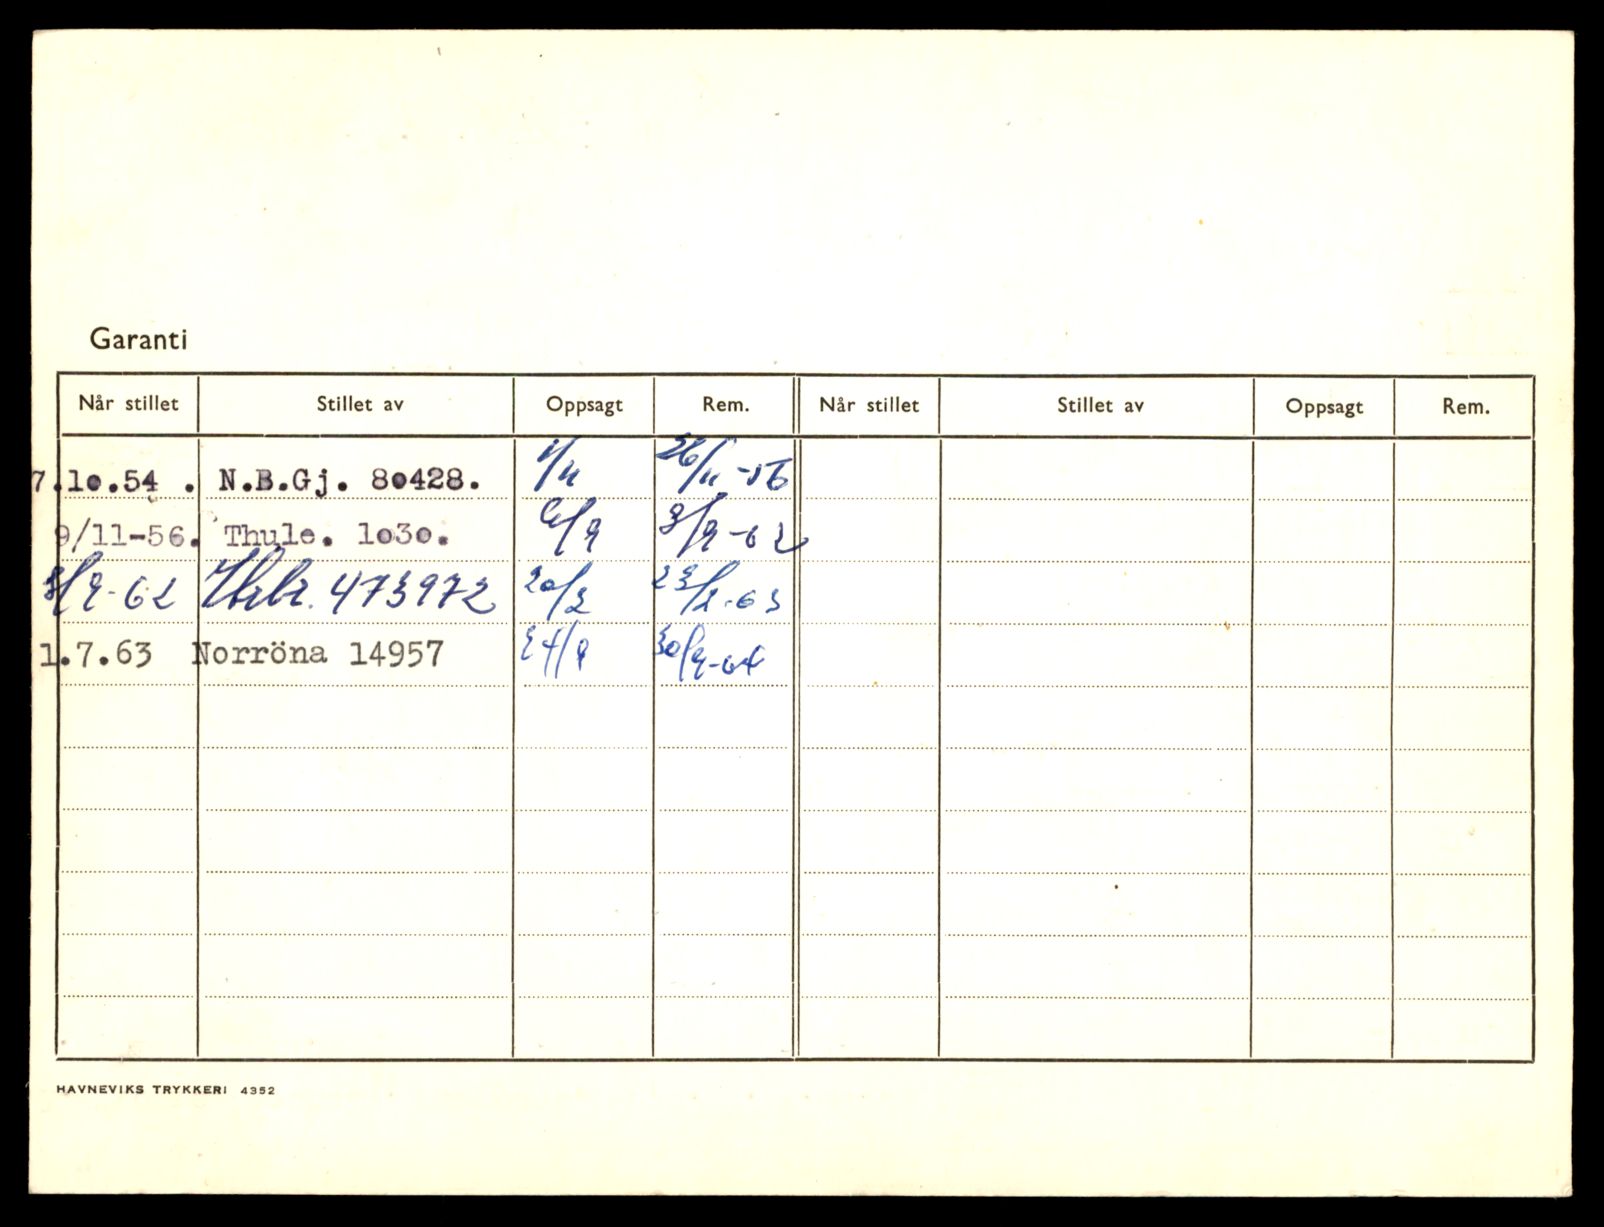 Garanti
Når stillet Stillet av Oppsagt Rem. Når stillet Stillet av Oppsagt Rem.
7.10.54 . N.B.Gj. 80428. 1/11 26/11-56
9/11-56. Thule. 1o3o. 6/9 3/9-62
3/9-62 473972 20/2 23/2-63
1.7.63 Norröna 14957 24/9 30/9-64
HAVNEVIKS TRYKKERI 4352